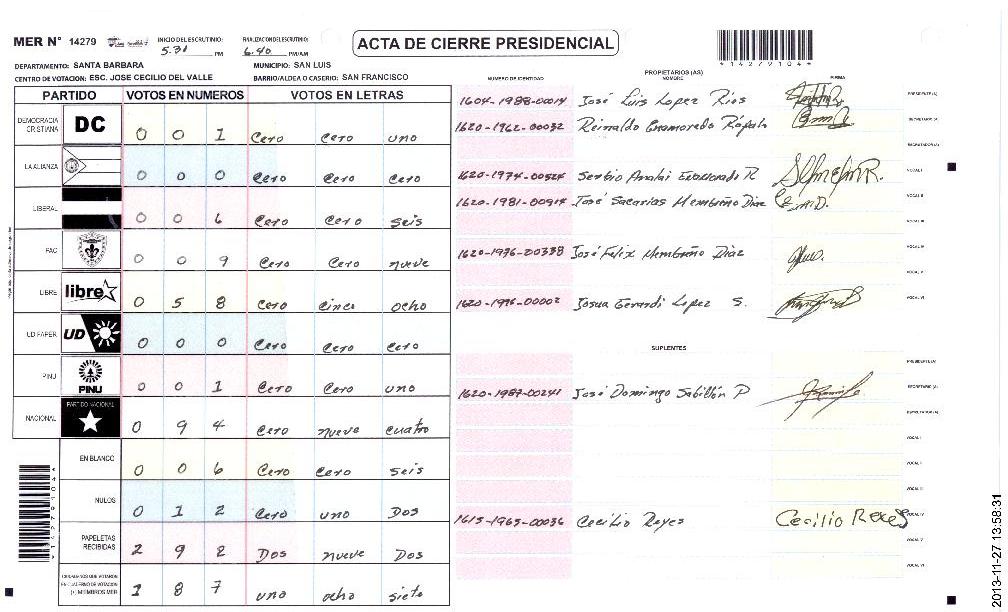 MER N° 14279
INICIO DEL ESCRUTINIO:
5.31 PM
FINALIZACION DEL ESCRUTINIO:
6.40 PM/AM
ACTA DE CIERRE PRESIDENCIAL
*14279104*
DEPARTAMENTO: SANTA BARBARA
MUNICIPIO: SAN LUIS
CENTRO DE VOTACION: ESC. JOSE CECILIO DEL VALLE
BARRIO/ALDEA O CASERIO: SAN FRANCISCO
PARTIDO VOTOS EN NUMEROS VOTOS EN LETRAS
DEMOCRACIA CRISTIANA DC 0 0 1 Cero Cero uno
LA ALIANZA 0 0 0 Cero Cero Cero
LIBERAL 0 0 6 Cero Cero seis
PAC 0 0 9 Cero Cero nueve
LIBRE libre 0 5 8 Cero cinco ocho
UD FAPER UD 0 0 0 Cero Cero Cero
PINU PINU 0 0 1 Cero Cero uno
NACIONAL PARTIDO NACIONAL 0 9 4 Cero nueve cuatro
EN BLANCO 0 0 6 Cero Cero seis
NULOS 0 1 2 Cero uno Dos
PAPELETAS RECIBIDAS 2 9 2 Dos nueve Dos
CIUDADANOS QUE VOTARON EN CUADERNO DE VOTACION (+) MIEMBROS MER 1 8 7 uno ocho siete
NUMERO DE IDENTIDAD
PROPIETARIOS (AS)
NOMBRE
FIRMA
1604-1988-00014 José Luis Lopez Rios
PRESIDENTE (A)
1620-1962-00032 Reinaldo Enamorado
SECRETARIO (A)
ESCRUTADOR (A)
1620-1974-00524 Sergio Enamorado R
VOCAL I
1620-1981-00914 José Sacarias Membreño Diaz
VOCAL II
VOCAL III
1620-1976-00338 José Felix Membreño Diaz
VOCAL IV
VOCAL V
1620-1996-00002 Josua Gerardi Lopez S.
VOCAL VI
SUPLENTES
PRESIDENTE (A)
1620-1987-00241 José Domingo Sabillón P
SECRETARIO (A)
ESCRUTADOR (A)
VOCAL I
VOCAL II
VOCAL III
1615-1965-00036 Cecilio Reyes Cecilio Reyes
VOCAL IV
VOCAL V
VOCAL VI
*14279104*
2013-11-27 13:58:31